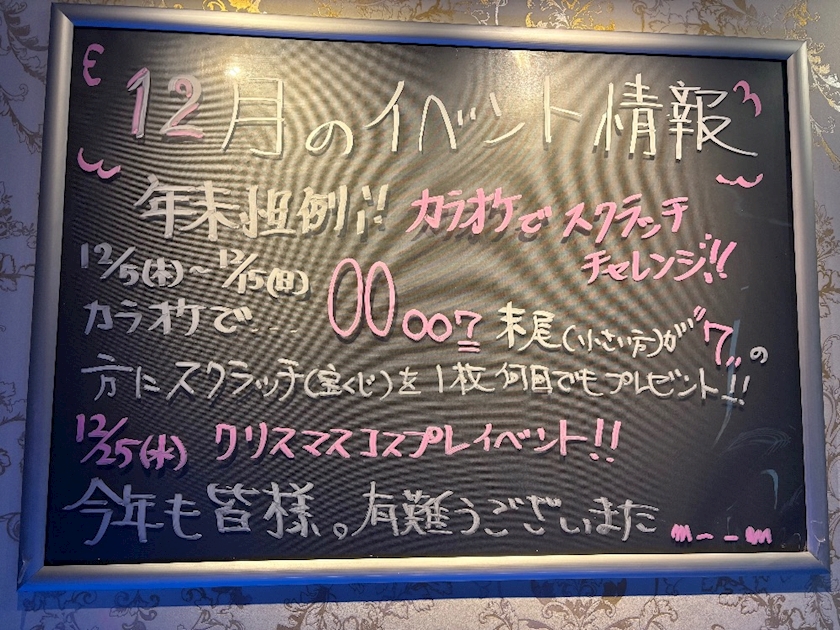 12月のイベント情報
年末担例!! カラオケでスクラッチチャレンジ!!
12/5(木)~12/15(日)
カラオケで 00007 末尾(小さい方)が"7"の
方にスクラッチ(宝くじ)を1枚何回でもプレゼント!!
12/25(水) クリスマスコスプレイベント!!
今年も皆様。有難うございました m--m